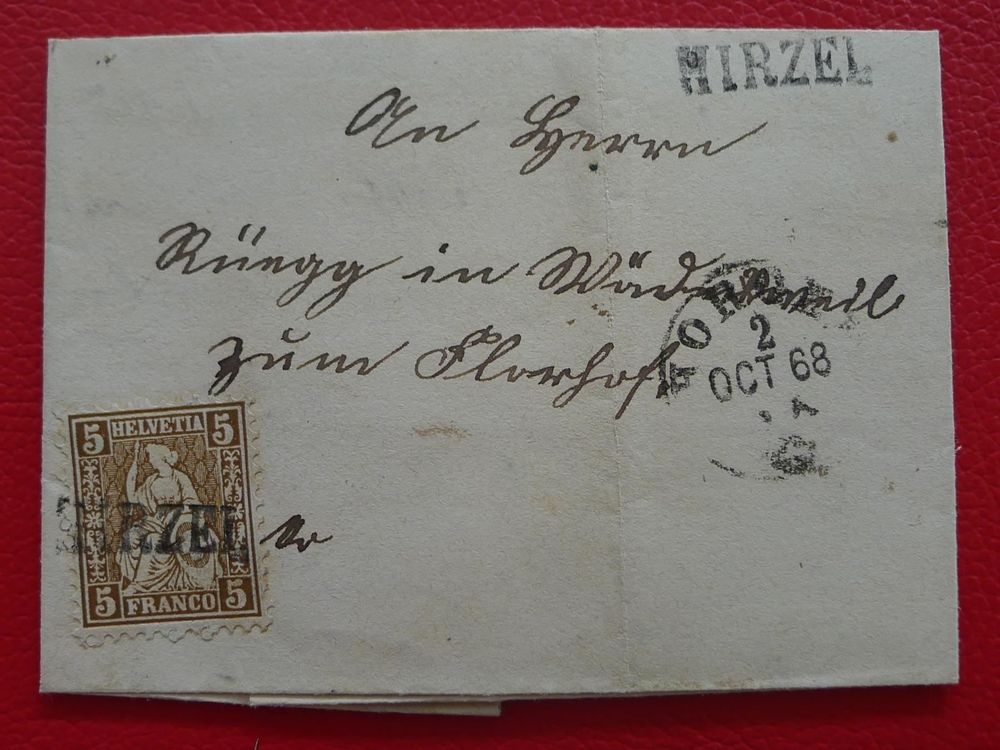 HIRZEL
An Herrn
Rüegg in Wädensweil
zum Florhof
2
OCT 68
5 HELVETIA 5
HIRZEL
5 FRANCO 5